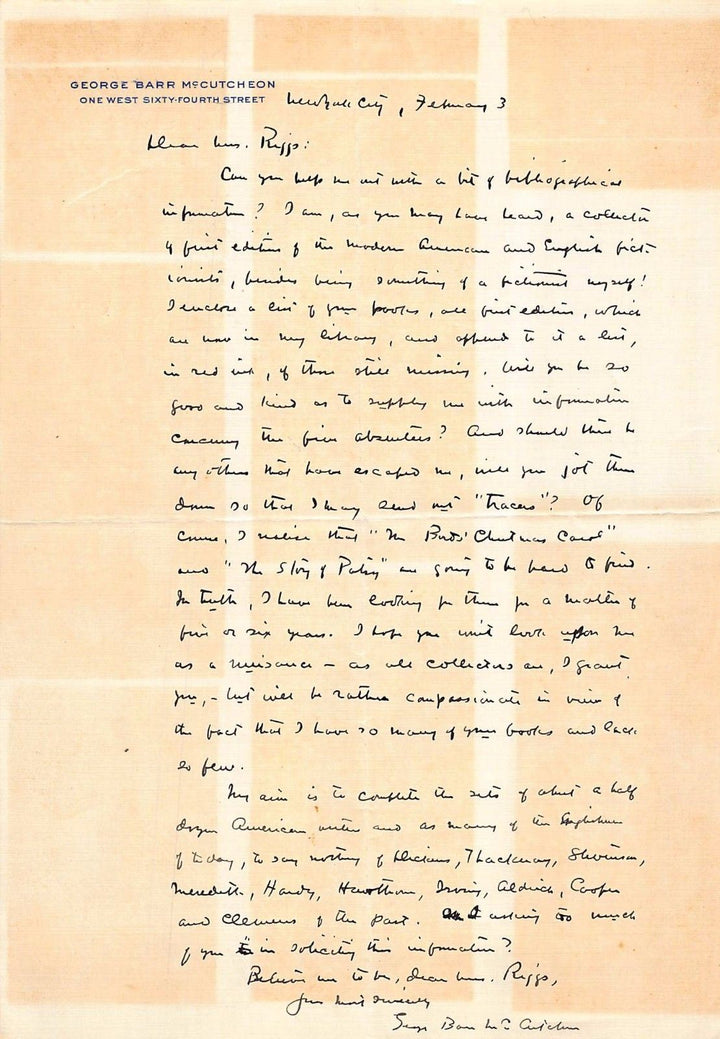 GEORGE BARR McCUTCHEON
ONE WEST SIXTY-FOURTH STREET
New York City, February 3
Dear Mrs. Riggs:
Can you help me out with a bit of bibliographical
information? I am, as you may have heard, a collector
of first editions of the modern American and English fict-
ionists, besides being something of a fictionist myself!
I enclose a list of your books, all first editions, which
are now in my library, and append to it a list,
in red ink, of those still missing. Will you be so
good and kind as to supply me with information
concerning the five absentees? And should there be
any others that have escaped me, will you jot them
down so that I may send out "tracers"? Of
course, I realise that "The Birds' Christmas Carol"
and "The Story of Patsy" are going to be hard to find.
In truth, I have been looking for them for a matter of
five or six years. I hope you won't look upon me
as a nuisance – as all collectors are, I grant
you, – but will be rather compassionate in view of
the fact that I have so many of your books and lack
so few.
My aim is to complete the sets of about a half
dozen American writers and as many of the Englishmen
of today, to say nothing of Dickens, Thackeray, Stevenson,
Meredith, Hardy, Hawthorn, Irving, Aldrich, Cooper
and Clemens of the past. Am I asking too much
of you in soliciting this information?
Believe me to be, dear Mrs. Riggs,
Yours most sincerely
George Barr McCutcheon